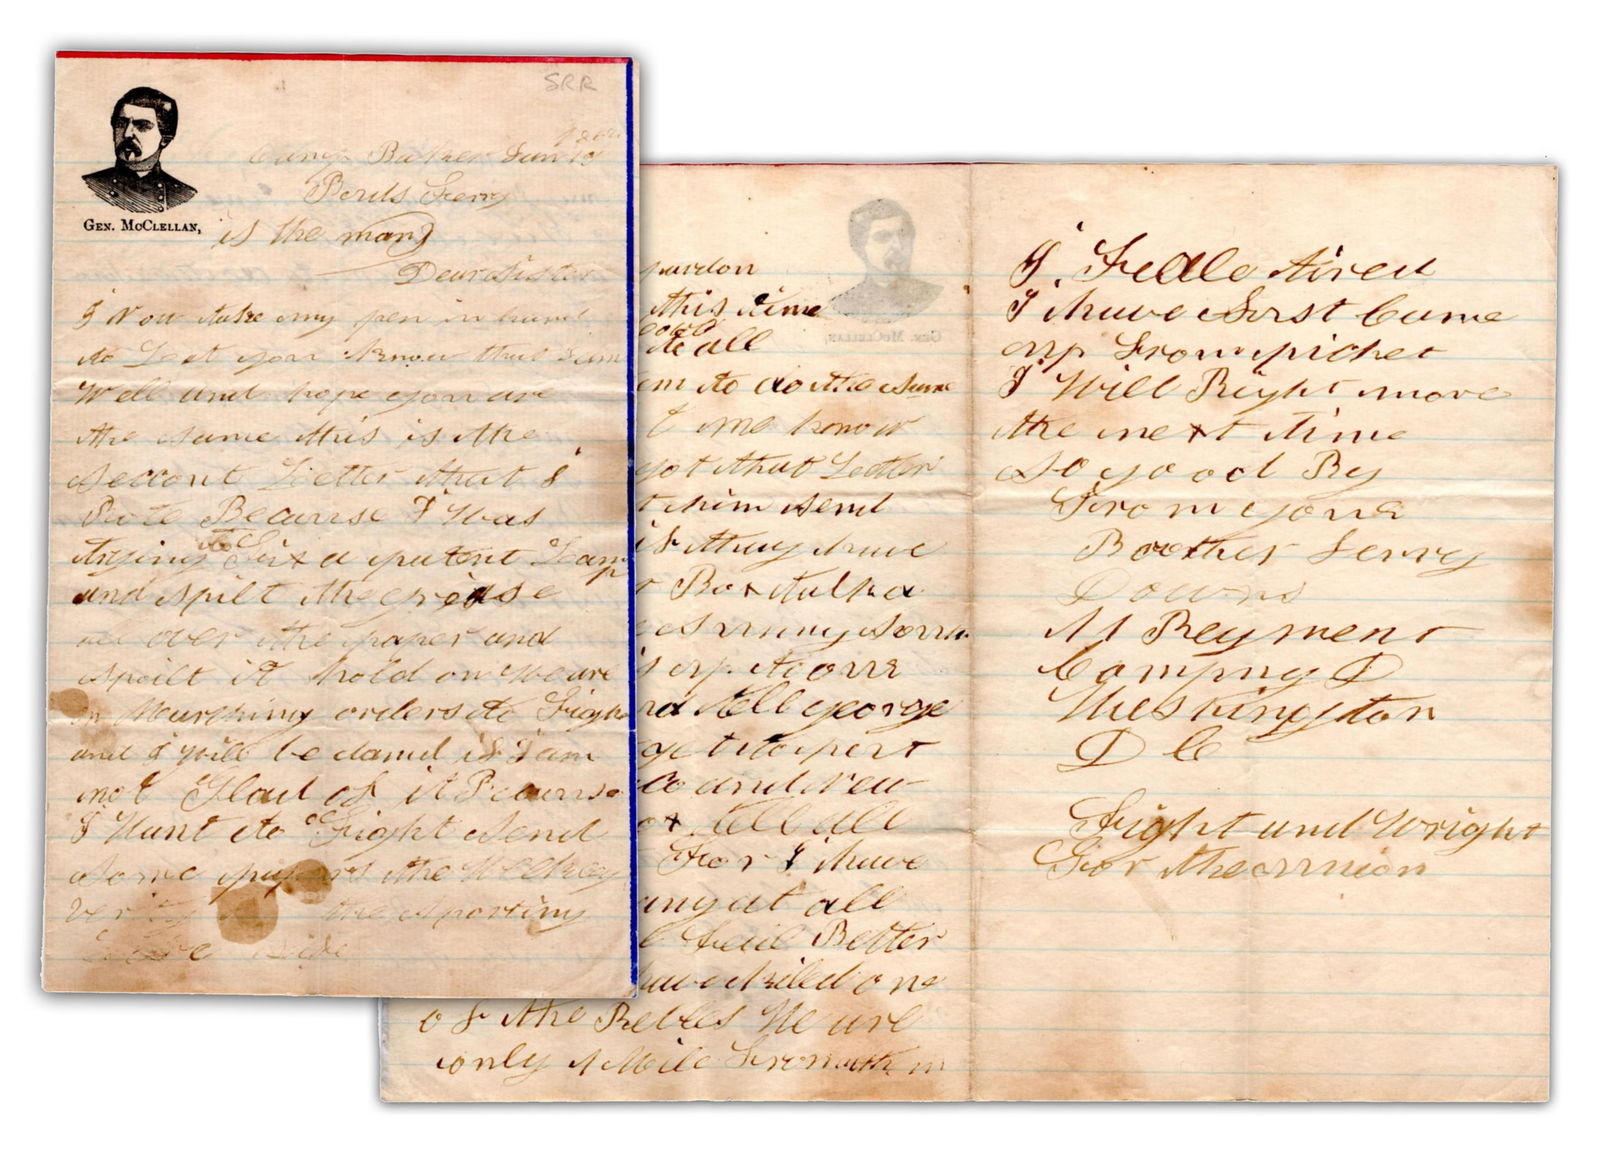 SRR
1862
Camp Baker Jan 19
Perils Ferry
GEN. McCLELLAN,
is the man)
Dear Sister
I Now take my pen in hand
to Let you know that I am
Well and hope you are
the same this is the
seccont Letter that I
Rote Because I Was
trying to Fix a patent Lamp
and spilt the grease
all over the paper and
spoilt it hold on We are
in Marching orders to Fight
and I will be damd if I am
not Glad of it Becaurse
I Want to Fight send
some papers the Weekley
the sporting
pardon
this time
to all
em to do the same
t me know
got that Letter
t him send
if thay have
r Box talk a
s up to our
nd tell george
get to port
Co and New
ox tell all
For I have
any at all
l Feail Better
have kiled one
of the Rebles We are
only 1 Mile From them
I. Fealle tired
I have Jorst Came
up From picket
I Will Right more
the next time
so good By
From your
Boother Jerry
Downs
11 Reyment
Compny D
Weskington
D C
Fight and Wright
For the onnion